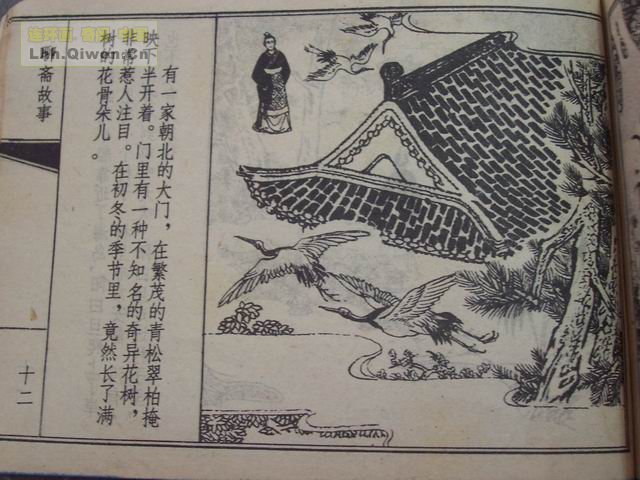 有一家朝北的大门，在繁茂的青松翠柏掩
映下半开着。门里有一种不知名的奇异花树，
非常惹人注目。在初冬的季节里，竟然长了满
树的花骨朵儿。
聊斋故事
十二
Lhh.Qiwon.Cn